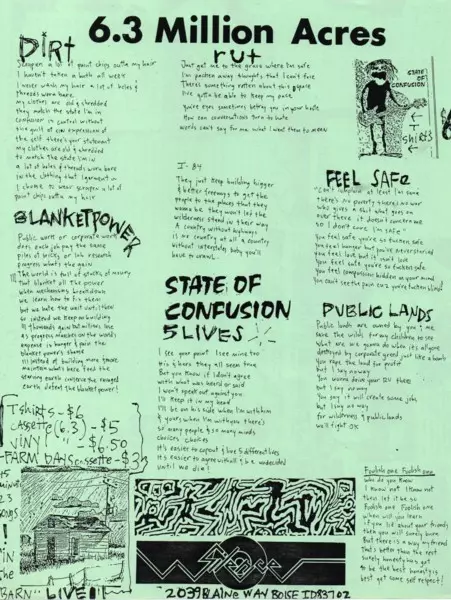 6.3 Million Acres
DIRT
Scrapen a lot of paint chips outta my hair
I haven't taken a bath all week
I never wash my hair a lot of holes &
threads worn bare.
my clothes are old & shredded
they match the state I'm in
confusion in control without
the guilt of
the self there's your statement
my clothes are old & shredded
to match the state I'm in
a lot of holes & threads worn bare
in the clothing that I
I choose to wear scrapen a lot of
paint chips outta my hair
BLANKETPOWER
Public work or corporate work
does each job pay the same
piles of
progress what's the gain
The world is full of
that blanket all the power
when mechanisms breakdown
we learn how to fix them
but we hate the wait
so instead we keep on building
thousands gain but millions lose
as progress marches on the world's
expense in hunger & pain the
blanket power's shame
instead of building more
maintain what's here feed the
starving earth conserve the ravaged
earth defeat the blanket power!
rut
Just get me to the grass where I'm safe
I'm pushen away thoughts that I can't face
Theres something rotten about this
I've gotta be able to keep my pace
you're eyes sometimes betray you in your haste
How can conversations turn to hate
words can't say for me what I want them to mean
I-84
They just keep building bigger
& better freeways to get the
people to the places that they
wanna be they won't let the
wilderness stand in their way
A country without highways
is no country at all a country
without interstates baby you'll
have to crawl
STATE OF
CONFUSION
5 LIVES
I see your point I see mine too
His & hers they all seem true
But you know if I don't agree
with what was heard or said
I won't speak out against you
I'll keep it in my head
I'll be on his side when I'm with him
& yours when I'm with you there's
so many people & so many minds
choices choices
It's easier to cop out & live 5 different lives
It's easier to agree with all & be undecided
until we die!
STATE
OF
CONFUSION
shirts
FEEL SAFE
"Can't complain at least I'm sane
there's no poverty there's no war
who gives a shit what goes on
over there it doesn't concern me
so I don't care I'm safe"
You feel safe you're so fucken safe
You feel hunger but you've never starved
You feel lost but
You feel safe you're so fucken safe
You feel compassion hidden in your mind
You can't see the pain cuz you're fucken blind
PUBLIC LANDS
Public lands are owned by you & me
save the wilds for my children to see
what are we gonna do when its all gone
destroyed by corporate greed just like a bomb
You rape the land for profit
but I say no way
You wanna drive your RV there
but I say no way
You say it will create some jobs
but I say no way
for wilderness & public lands
we'll fight OK
T-shirts - $6
CASSETTE (6.3) - $5
VINYL " - $6.50
FARM DAYS cassette - $3
45
MINUTES
23
SONGS
!
in
the
Barn"
LIVE!!
SILENCE
2039 BLAINE WAY BOISE ID 83702
Foolish one Foolish one
Who do you know
I know not I know not
then let it be so
Foolish one Foolish one
when will you learn
if you lie about your friends
then you will surely burn
But there is a way my friend
That's better than the rest
Surely honesty has got
to be the best honesty is
best get some self respect!